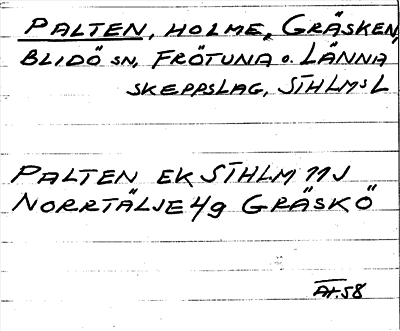 PALTEN, HOLME, GRÄSKEN,
BLIDÖ SN, FRÖTUNA O. LÄNNA
SKEPPSLAG, STHLMS L
PALTEN EK STHLM 11J
NORRTÄLJE 4g GRÄSKÖ
AT.58